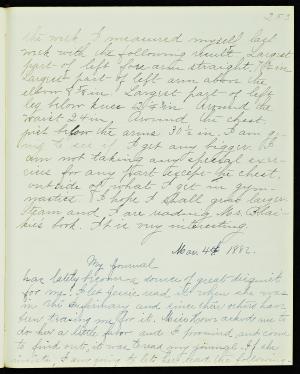 253
the week I measured myself last
week with the following result. Largest
part of left fore-arm straight, in
largest part of left arm above the
elbow in Largest part of left
leg below knee in Around the
waist 24 in. Around the chest
just below the arms 30½ in. I am go-
ing to see if I get any bigger. I
am not taking any special exer-
cise for any part except the chest,
outside of what I get in gym-
nastics. I hope I shall grow larger.
and I are reading Mr.
book. It is very interesting.
Mar. 4th, 1882.
My Journal
has lately become a source of great disquiet
for me. I let read it when she was
in the and since then others have
been teasing me for it. Miss asked me to
do her a little favor and I promised, and come
to find out, it was to read my journal. If she
I am going to let her read the following